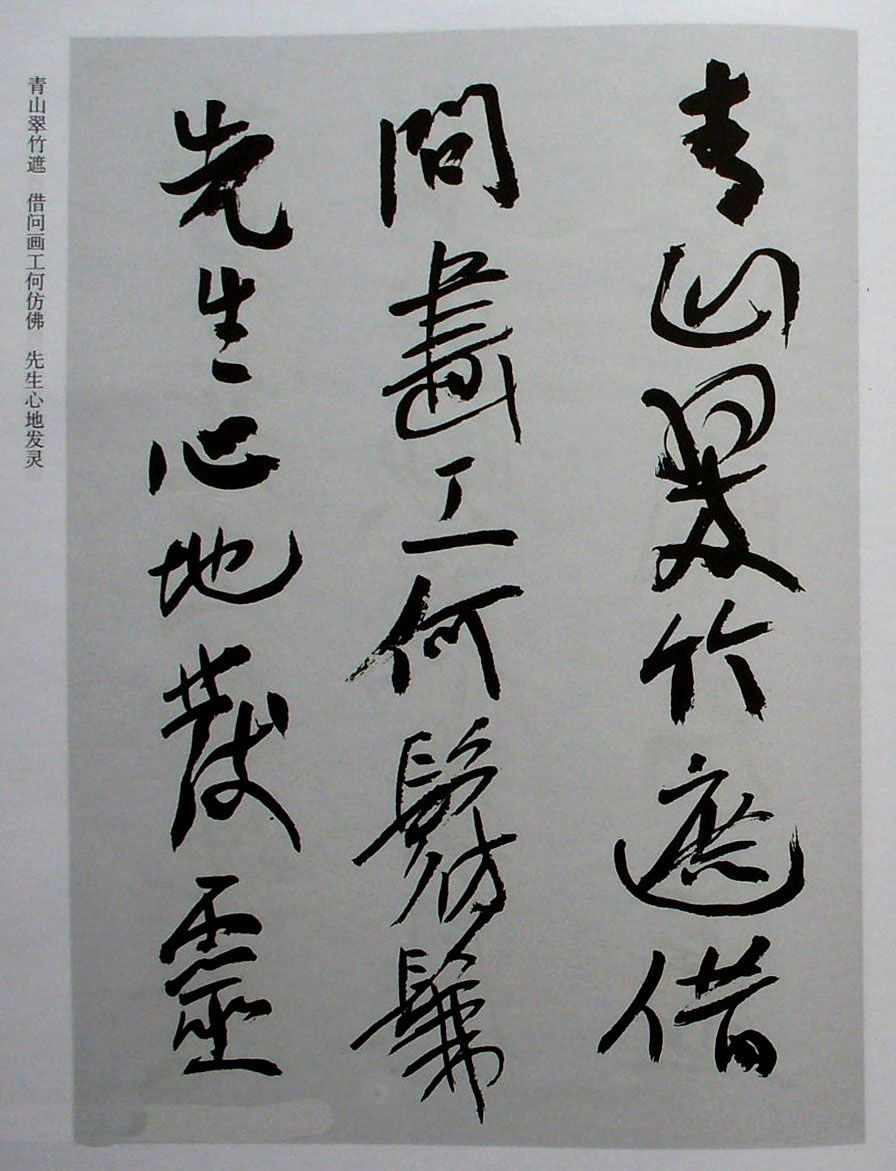 青山翠竹遮借
問畫工何髣髴
先生心地發靈
青山翠竹遮 借问画工何仿佛 先生心地发灵